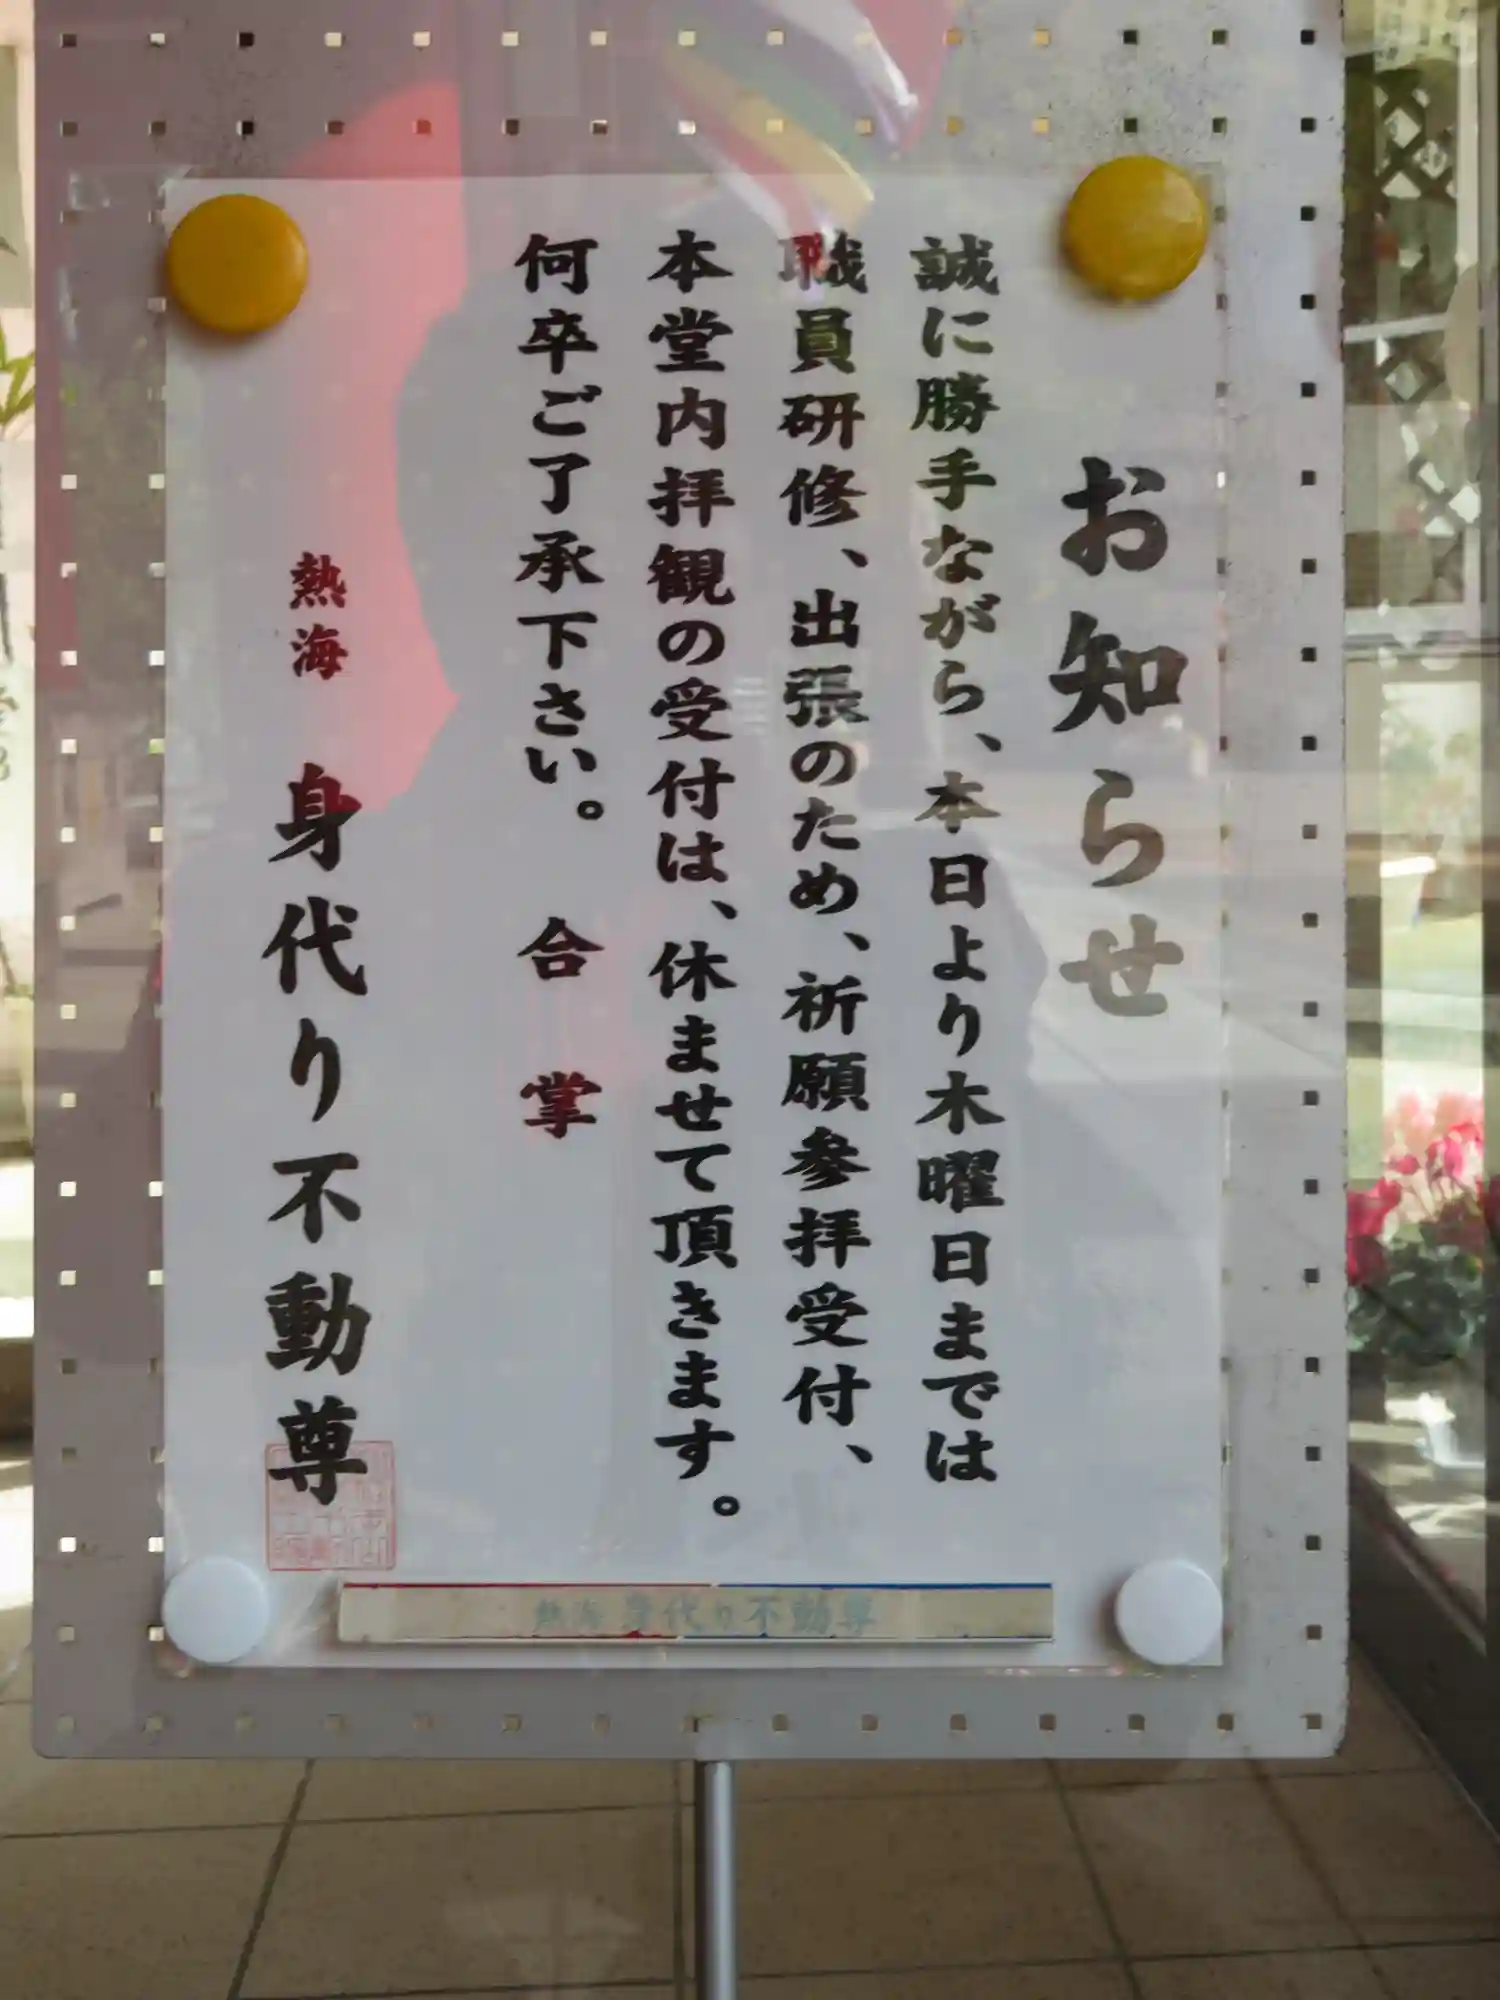 お知らせ
誠に勝手ながら、本日より木曜日までは
職員研修、出張のため、祈願参拝受付、
本堂内拝観の受付は、休ませて頂きます。
何卒ご了承下さい。　合　掌
熱海　身代り不動尊
熱海 身代り不動尊